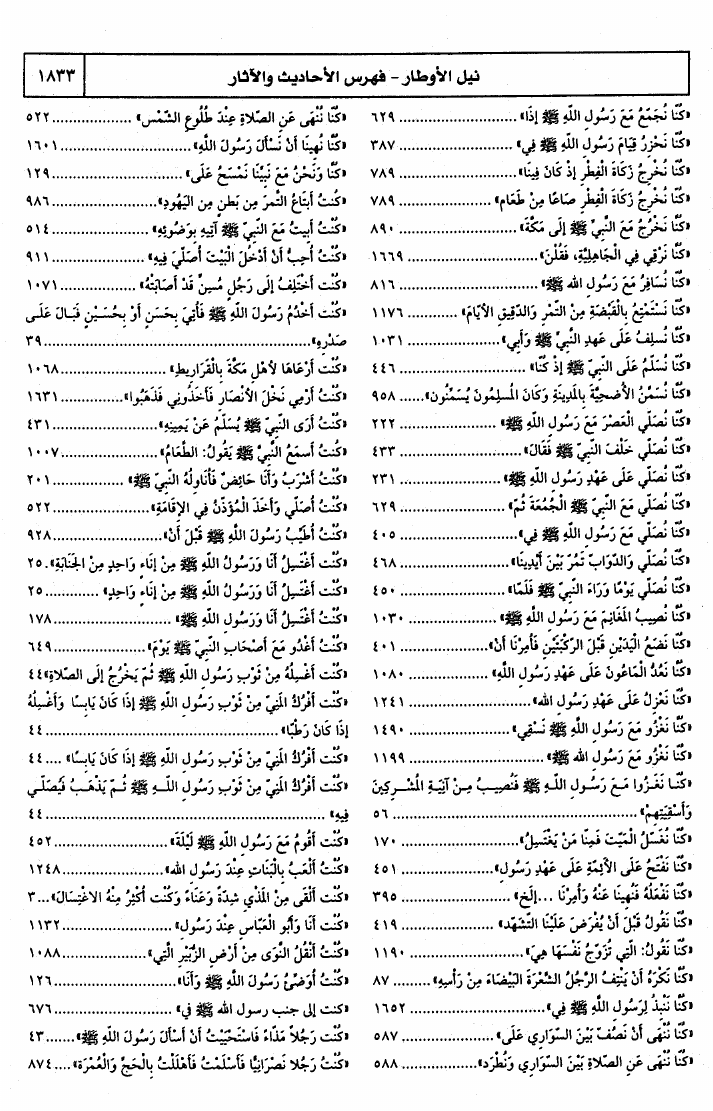 نيل الأوطار - فهرس الأحاديث والآثار
١٨٣٣
«كُنَّا نُجَمِّعُ مَعَ رَسُولِ اللهِ ﷺ إِذَا» ............ ٦٢٩
«كُنَّا نَحْزِرُ قِيَامَ رَسُولِ اللهِ ﷺ فِي» ............ ٣٨٧
«كُنَّا نُخْرِجُ زَكَاةَ الْفِطْرِ إِذْ كَانَ فِينَا» ............ ٧٨٩
«كُنَّا نُخْرِجُ زَكَاةَ الْفِطْرِ صَاعًا مِنْ طَعَامٍ» ............ ٧٨٩
«كُنَّا نَخْرُجُ مَعَ النَّبِيِّ ﷺ إِلَى مَكَّةَ» ............ ٨٩٠
«كُنَّا نَرْقِي فِي الْجَاهِلِيَّةِ، فَقُلْنَ» ............ ١٦٦٩
«كُنَّا نُسَافِرُ مَعَ رَسُولِ الله ﷺ» ............ ٨١٦
«كُنَّا نَسْتَمْتِعُ بِالْقَبْضَةِ مِنْ التَّمْرِ وَالدَّقِيقِ الأَيَّامَ» ............ ١١٧٦
«كُنَّا نُسْلِفُ عَلَى عَهْدِ النَّبِيِّ ﷺ وَأَبِي» ............ ١٠٣١
«كُنَّا نُسَلِّمُ عَلَى النَّبِيِّ ﷺ إِذْ كُنَّا» ............ ٤٤٦
«كُنَّا نُسَمِّنُ الأُضْحِيَّةَ بِالْمَدِينَةِ وَكَانَ الْمُسْلِمُونَ يُسَمِّنُونَ» ...... ٩٥٨
«كُنَّا نُصَلِّي الْعَصْرَ مَعَ رَسُولِ اللهِ ﷺ» ............ ٢٢٢
«كُنَّا نُصَلِّي خَلْفَ النَّبِيِّ ﷺ فَقَالَ» ............ ٤٣٣
«كُنَّا نُصَلِّي عَلَى عَهْدِ رَسُولِ اللهِ ﷺ» ............ ٢٣١
«كُنَّا نُصَلِّي مَعَ النَّبِيِّ ﷺ الْجُمُعَةَ ثُمَّ» ............ ٦٢٩
«كُنَّا نُصَلِّي مَعَ رَسُولِ اللهِ ﷺ فِي» ............ ٤٠٥
«كُنَّا نُصَلِّي وَالدَّوَابُّ تَمُرُّ بَيْنَ أَيْدِينَا» ............ ٤٦٨
«كُنَّا نُصَلِّي يَوْمًا وَرَاءَ النَّبِيِّ ﷺ فَلَمَّا» ............ ٤٥٠
«كُنَّا نُصِيبُ الْمَغَانِمَ مَعَ رَسُولِ اللهِ ﷺ» ............ ١٠٣٠
«كُنَّا نَضَعُ الْيَدَيْنِ قَبْلَ الرُّكْبَتَيْنِ فَأُمِرْنَا أَنْ» ............ ٤٠١
«كُنَّا نَعُدُّ الْمَاعُونَ عَلَى عَهْدِ رَسُولِ اللهِ» ............ ١٠٨٠
«كُنَّا نَعْزِلُ عَلَى عَهْدِ رَسُولِ الله» ............ ١٢٤١
«كُنَّا نَغْزُو مَعَ رَسُولِ اللهِ ﷺ نَسْقِي» ............ ١٤٩٠
«كُنَّا نَغْزُو مَعَ رَسُولِ الله ﷺ» ............ ١١٩٩
«كُنَّا نَغْزُوا مَعَ رَسُولِ اللهِ ﷺ فَنُصِيبُ مِنْ آنِيَةِ الْمُشْرِكِينَ
وَأَسْقِيَتِهِمْ» ............ ٥٦
«كُنَّا نُغَسِّلُ الْمَيِّتَ فَمِنَّا مَنْ يَغْتَسِلُ» ............ ١٧٠
«كُنَّا نَفْتَحُ عَلَى الأَئِمَّةِ عَلَى عَهْدِ رَسُولِ» ............ ٤٥١
«كُنَّا نَفْعَلُهُ فَنُهِينَا عَنْهُ وَأُمِرْنَا ...إلخ» ............ ٣٩٥
«كُنَّا نَقُولُ قَبْلَ أَنْ يُفْرَضَ عَلَيْنَا التَّشَهُّدُ» ............ ٤١٩
«كُنَّا نَقُولُ: الَّتِي تُزَوِّجُ نَفْسَهَا هِيَ» ............ ١١٩٠
«كُنَّا نَكْرَهُ أَنْ يَنْتِفَ الرَّجُلُ الشَّعْرَةَ الْبَيْضَاءَ مِنْ رَأْسِهِ» ...... ٨٧
«كُنَّا نَنْبِذُ لِرَسُولِ اللهِ ﷺ فِي» ............ ١٦٥٢
«كُنَّا نُنْهَى أَنْ نَصُفَّ بَيْنَ السَّوَارِي عَلَى» ............ ٥٨٧
«كُنَّا نُنْهَى عَنِ الصَّلاةِ بَيْنَ السَّوَارِي وَنُطْرَد» ............ ٥٨٨
«كُنَّا نُنْهَى عَنِ الصَّلاةِ عِنْدَ طُلُوعِ الشَّمْسِ» ............ ٥٢٢
«كُنَّا نُهِينَا أَنْ نَسْأَلَ رَسُولَ اللهِ» ............ ١٦٠١
«كُنَّا وَنَحْنُ مَعَ نَبِيِّنَا نَمْسَحُ عَلَى» ............ ١٢٩
«كُنْتُ أَبْتَاعُ التَّمْرَ مِن بَطْنٍ مِن الْيَهُودِ» ............ ٩٨٦
«كُنْتُ أَبِيتُ مَعَ النَّبِيِّ ﷺ آتِيهِ بِوَضُوئِهِ» ............ ٥١٤
«كُنْتُ أُحِبُّ أَنْ أَدْخُلَ الْبَيْتَ أُصَلِّيَ فِيهِ» ............ ٩١١
«كُنْتُ أَخْتَلِفُ إِلَى رَجُلٍ مُسِنٍّ قَدْ أَصَابَتْهُ» ............ ١٠٧١
«كُنْت أَخْدُمُ رَسُولَ اللهِ ﷺ فَأُتِيَ بِحَسَنٍ أَوْ بِحُسَيْنٍ فَبَالَ عَلَى
صَدْرِهِ» ............ ٣٩
«كُنْت أَرْعَاهَا لأَهْلِ مَكَّةَ بِالْقَرَارِيطِ» ............ ١٠٦٨
«كُنْت أَرْمِي نَخْلَ الأَنْصَارِ فَأَخَذُونِي فَذَهَبُوا» ............ ١٦٣١
«كُنْت أَرَى النَّبِيَّ ﷺ يُسَلِّمُ عَنْ يَمِينِهِ» ............ ٤٣١
«كُنْت أَسمَعُ النَّبِيَّ ﷺ يَقُولُ: الطَّعَامُ» ............ ١٠٠٧
«كُنْت أَشْرَبُ وَأَنَا حَائِضٌ فَأُنَاوِلُهُ النَّبِيَّ ﷺ» ............ ٢٠١
«كُنْتُ أُصَلِّي وَأَخَذَ الْمُؤَذِّنُ فِي الإِقَامَةِ» ............ ٥٢٢
«كُنْتُ أُطَيِّبُ رَسُولَ اللهِ ﷺ قَبْلَ أَنْ» ............ ٩٢٨
«كُنْتُ أَغْتَسِلُ أَنَا وَرَسُولُ اللَّهِ ﷺ مِنْ إِنَاءٍ وَاحِدٍ مِنْ الْجَنَابَةِ». ٢٥
«كُنْتُ أَغْتَسِلُ أَنَا وَرَسُولُ اللَّهِ ﷺ مِنْ إِنَاءٍ وَاحِدٍ» ........ ٢٥
«كُنْتُ أَغْتَسِلُ أَنَا وَرَسُولُ اللهِ ﷺ» ............ ١٧٨
«كُنْتُ أَغْدُو مَعَ أَصْحَابِ النَّبِيِّ ﷺ يَوْمَ» ............ ٦٤٩
«كُنْت أَغْسِلُهُ مِنْ ثَوْبِ رَسُولِ اللهِ ﷺ ثُمَّ يَخْرُجُ إِلَى الصَّلاةِ» ٤٤
«كُنْت أَفْرُكُ الْمَنِيَّ مِنْ ثَوْبِ رَسُولِ اللَّهِ ﷺ إِذَا كَانَ يَابِسًا وَأَغْسِلُهُ
إِذَا كَانَ رَطْبًا» ............ ٤٤
«كُنْت أَفْرُكُ الْمَنِيَّ مِنْ ثَوْبِ رَسُولِ اللَّهِ ﷺ إِذَا كَانَ يَابِسًا» ..... ٤٤
«كُنْت أَفْرُكُ الْمَنِيَّ مِنْ ثَوْبِ رَسُولِ اللهِ ﷺ ثُمَّ يَذْهَبُ فَيُصَلِّي
فِيهِ» ............ ٤٤
«كُنْت أَقُومُ مَعَ رَسُولِ اللهِ ﷺ لَيْلَةَ» ............ ٤٥٢
«كُنْت أَلْعَبُ بِالْبَنَاتِ عِنْدَ رَسُولِ الله» ............ ١٢٤٨
«كُنْت أَلْقَى مِنْ الْمَذْيِ شِدَّةً وَعَنَاءً وَكُنْت أُكْثِرُ مِنْهُ الاغْتِسَالَ» ... ٣
«كُنْت أَنَا وَأَبُو الْعَبَّاسِ عِنْدَ رَسُولِ» ............ ١١٣٢
«كُنْت أَنْقُلُ النَّوَى مِنْ أَرْضِ الزُّبَيْرِ الَّتِي» ............ ١٠٨٨
«كُنْت أُوَضِّئُ رَسُولَ اللَّهِ ﷺ وَأَنَا» ............ ١٢٦
«كنت إلى جنب رسول الله ﷺ في» ............ ٦٧٦
«كُنْتُ رَجُلاً مَذَّاءً فَاسْتَحْيَيْتُ أَنْ أَسْأَلَ رَسُولَ اللَّهِ ﷺ» ...... ٤٣
«كُنْتُ رَجُلا نَصْرَانِيًّا فَأَسْلَمْتُ فَأَهْلَلْتُ بِالْحَجِّ وَالْعُمْرَةِ» .... ٨٧٤